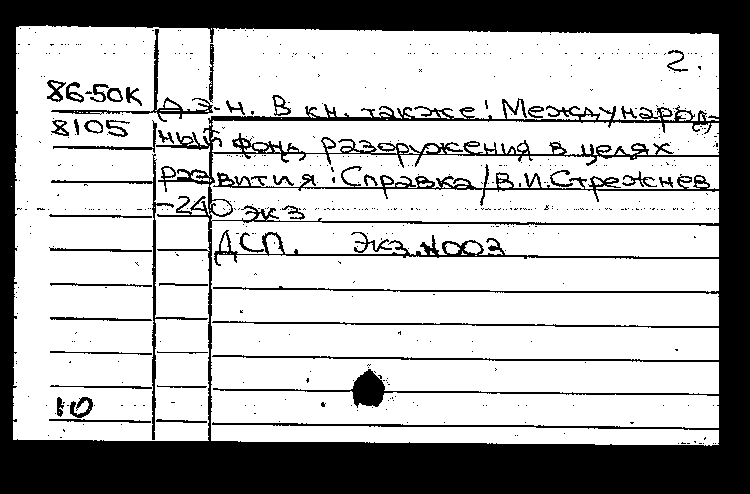 2.
86-50К
д.э.н. В кн. также: Международ-
8105
ный фонд разоружения в целях
развития : Справка / В.И.Стрежнев
-240 экз.
ДСП. Экз.N003
10